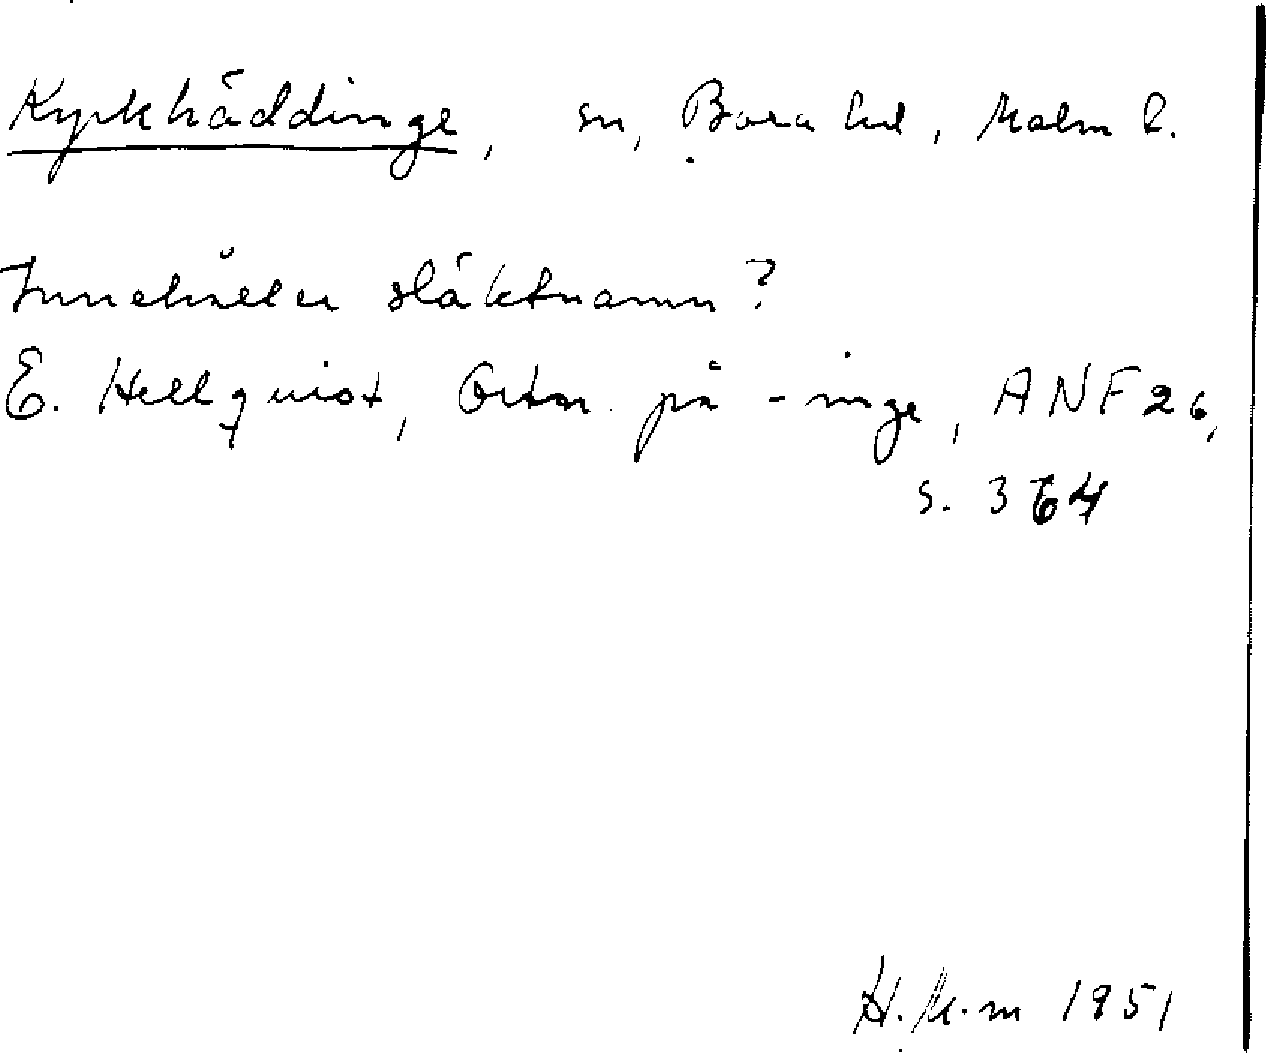 Kyrkhäddinge, sn, Bara hd, Malm l.
Innehåller släktnamn?
E. Hellquist, Ortn. på -inge, ANF 26,
s. 364
H. M-m 1951